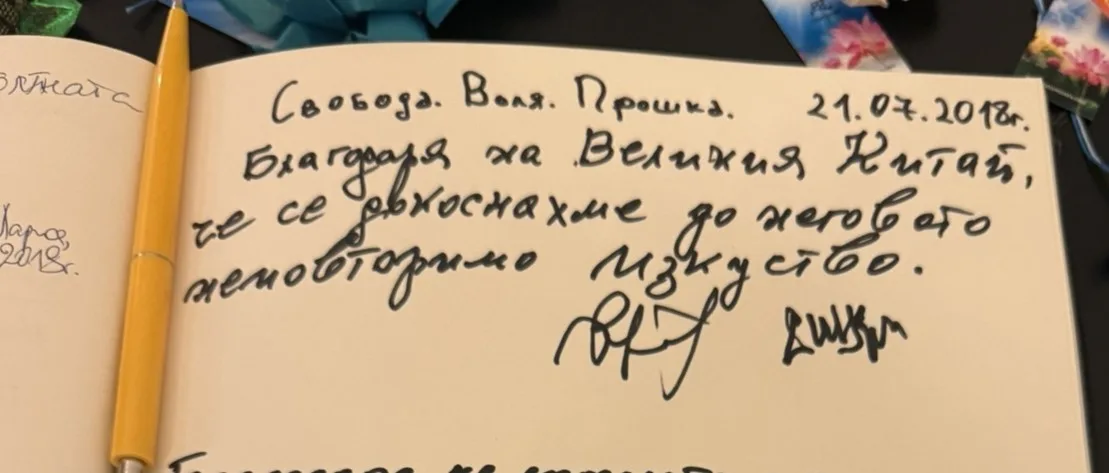 Свобода. Воля. Прошка. 21.07.2018г.
Благодаря на Великия Китай,
че се докоснахме до неговото
неповторимо изкуство.
2018г.